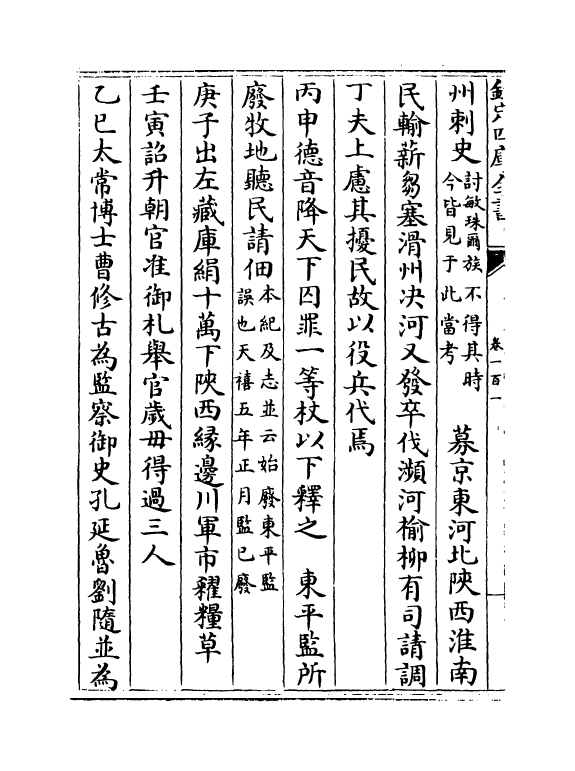 欽定四庫全書
卷一百一
州刺史討敏珠爾族不得其時今皆見于此當考　募京東河北陝西淮南
民輸薪芻塞滑州决河又發卒伐瀕河榆柳有司請調
丁夫上慮其擾民故以役兵代焉
丙申德音降天下囚罪一等杖以下釋之　東平監所
廢牧地聽民請佃本紀及志並云始廢東平監誤也天禧五年正月監已廢
庚子出左藏庫絹十萬下陝西縁邊川軍市糴糧草
壬寅詔升朝官准御札舉官歲毋得過三人
乙巳太常博士曹修古為監察御史孔延魯劉隨並為